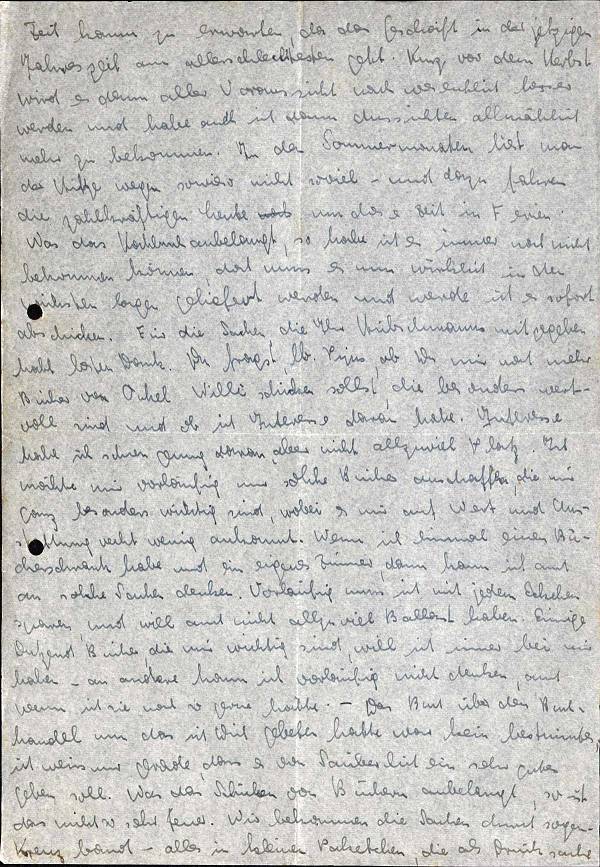 Zeit kaum zu erwarten, da das Geschäft in der jetzigen
Jahreszeit am allerschlechtesten geht. Kurz vor dem Herbst
wird es dann aller Voraussicht nach wesentlich besser
werden und habe auch ich dann Aussichten allmählich
mehr zu bekommen. In den Sommermonaten liest man
der Hitze wegen sowieso nicht soviel - und dazu fahren
die zahlkräftigen Leute um diese Zeit in Ferien.
Was das anbelangt, so habe ich es immer noch nicht
bekommen können, doch muss es nun wirklich in den
nächsten Tagen geliefert werden und werde ich es sofort
abschicken. Für die Sachen die Ihr mitgegeben
habt besten Dank. Du fragst, lb. ob Du mir noch mehr
Bücher von Onkel Willi schicken sollst, die besonders wert-
voll sind und ob ich Interesse daran habe. Interesse
habe ich schon genug daran, aber nicht allzuviel Platz. Ich
möchte mir vorläufig nur solche Bücher anschaffen, die mir
ganz besonders wichtig sind, wobei es mir auf Wert und Aus-
stattung recht wenig ankommt. Wenn ich einmal einen Bü-
cherschrank habe und ein eigenes Zimmer, dann kann ich auch
an solche Sachen denken. Vorläufig muss ich mit jedem
sparen und will auch nicht allzuviel Ballast haben. Einige
Dutzend Bücher die mir wichtig sind, will ich immer bei mir
haben - an andere kann ich vorläufig nicht denken, auch
wenn ich sie noch so gerne hätte. - Das Buch über den Buch-
handel um das ich Dich gebeten hatte war kein bestimmtes,
ich weiss nur gerade, dass es ein sehr gutes
geben soll. Was das Schicken von Büchern anbelangt, so ist
das nicht so sehr teuer. Wir bekommen die Sachen durch sogen.
Kreuzband - alles in kleinen Paketchen, die als Drucksache